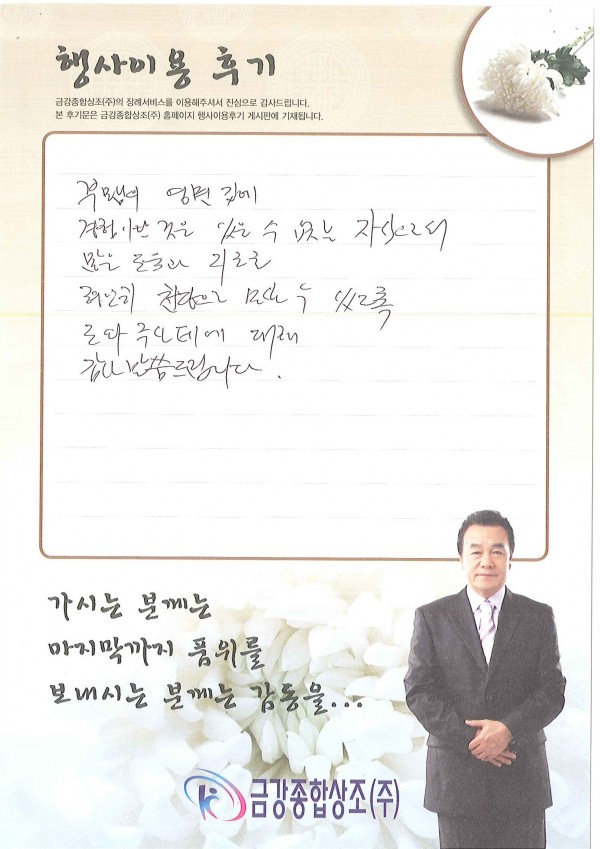 행사이용 후기
금강종합상조(주)의 장례서비스를 이용해주셔서 진심으로 감사드립니다.
본 후기문은 금강종합상조(주) 홈페이지 행사이용후기 게시판에 기재됩니다.
부모님의 영면 길에
경험이란 것은 있을 수 없는 자식으로서
많은 도움과 위로로
편안히 모실 수 있도록
도와 주신데에 대해
감사 말씀드립니다.
가시는 분께는
마지막까지 품위를
보내시는 분께는 감동을...
금강종합상조(주)